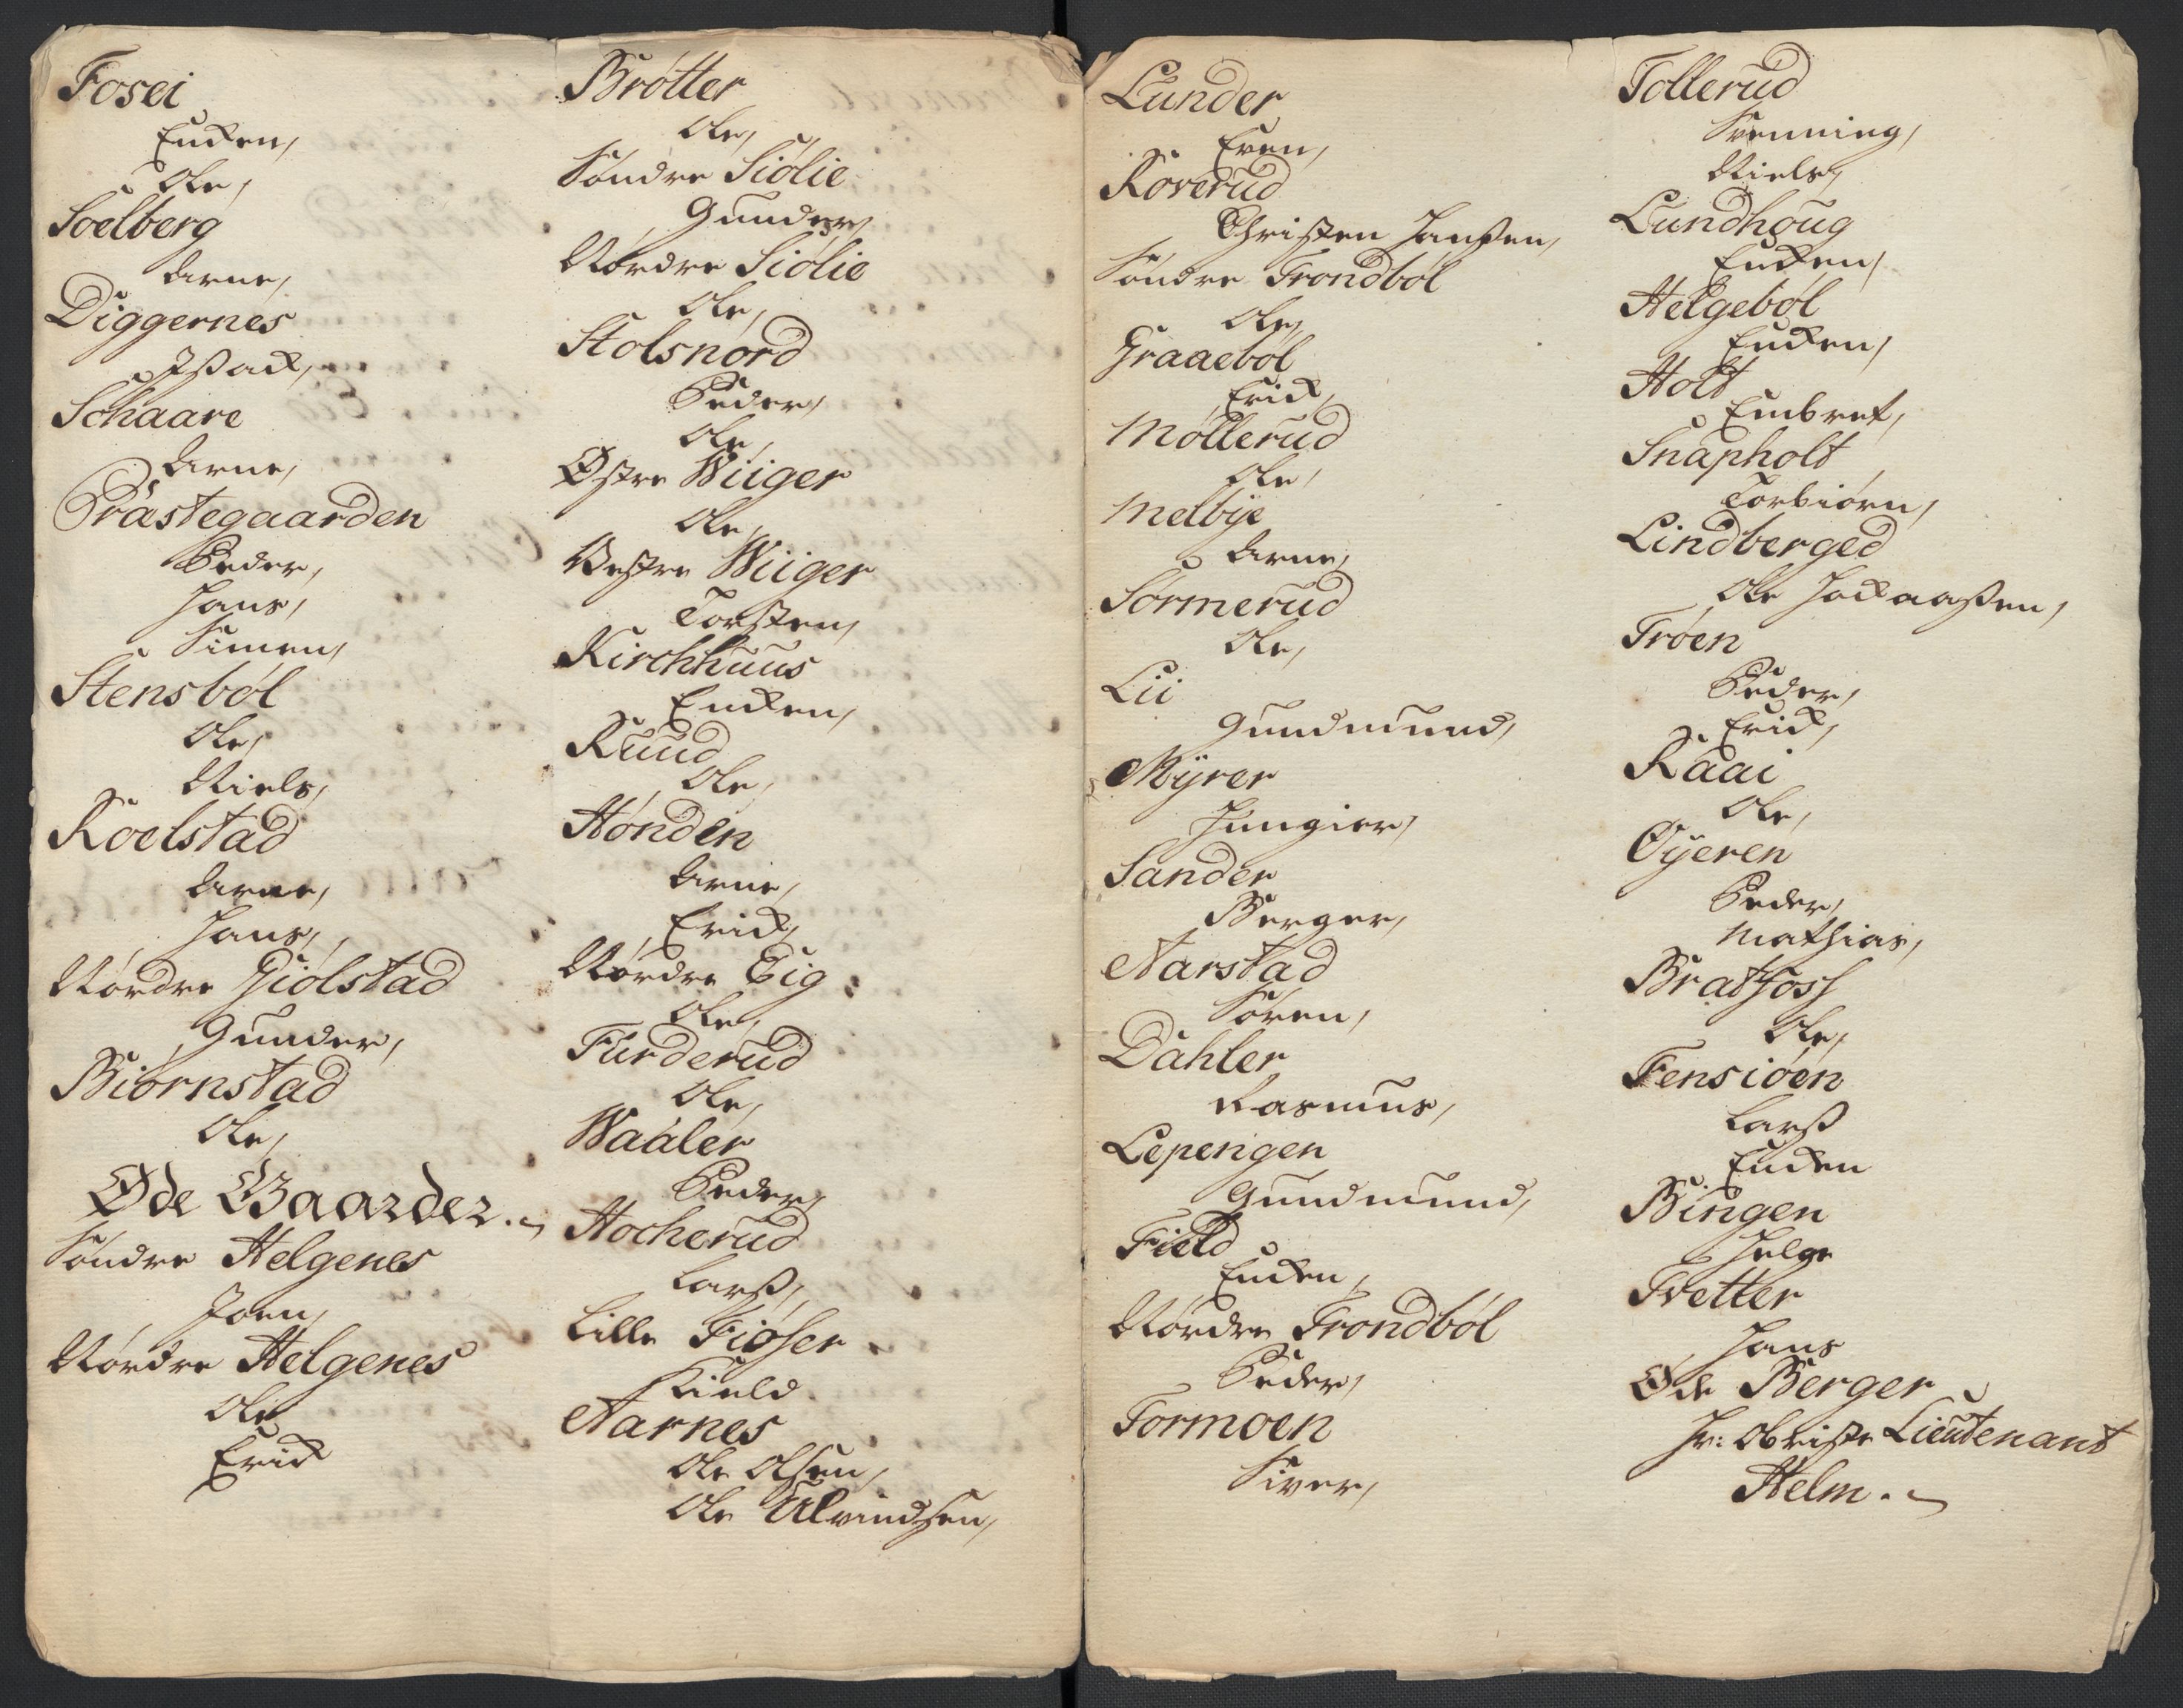 Fosei
Encken,
Ole,
Soelberg
Arne,
Diggernes
Issack,
Schaare
Arne,
Præstegaarden
Peder,
Hans,
Simen,
Stensböl
Ole,
Niels,
Roelstad
Arne,
Hans,
Nordre Giölstad
Gunder,
Biörnstad
Ole,
Øde Gaarder.
Söndre Helgenes
Joen,
Nordre Helgenes
Ole
Erick
Brötter
Ole,
Söndre Siölie
Gunder,
Nordre Siölie
Ole,
Stolsnord
Peder,
Ole,
Østre Wiiger
Ole,
Vestre Wiiger
Torsten,
Kirchhuus
Encken,
Ruud
Ole,
Hönden
Arne,
Erick,
Nordre Eig
Ole,
Furderud
Ole,
Waaler
Peder,
Hocherud
Lars,
Lille Fiöser
Kield
Aarnes
Ole Olsen,
Ole Alvindsen,
Lunder
Even,
Roverud
Christen Hansen,
Söndre Trondböl
Ole,
Graaeböl
Erick,
Möllerud
Ole,
Melbye
Arne,
Sormerud
Ole,
Lii
Gundmund,
Myrer
Sander
Berger,
Aarstad
Sören,
Dahler
Rasmus,
Leperigen
Gundmund,
Field
Encken,
Nordre Trondböl
Peder,
Formoen
Siver,
Tollerud
Svenning,
Niels,
Lundhoug
Encken,
Helgeböl
Encken,
Holt
Embret,
Snapholt
Torbiörn,
Lindberged
Ole Hockaassen,
Tröen
Peder,
Erick,
Raai
Ole,
Öyeren
Peder,
Mathias,
Bratfoss
Ole,
Fensiöen
Lars
Encken
Bingen
Helge
Tvetter
Hans
Øde Berger
Hr: Obriste Lieutenant
Helm.